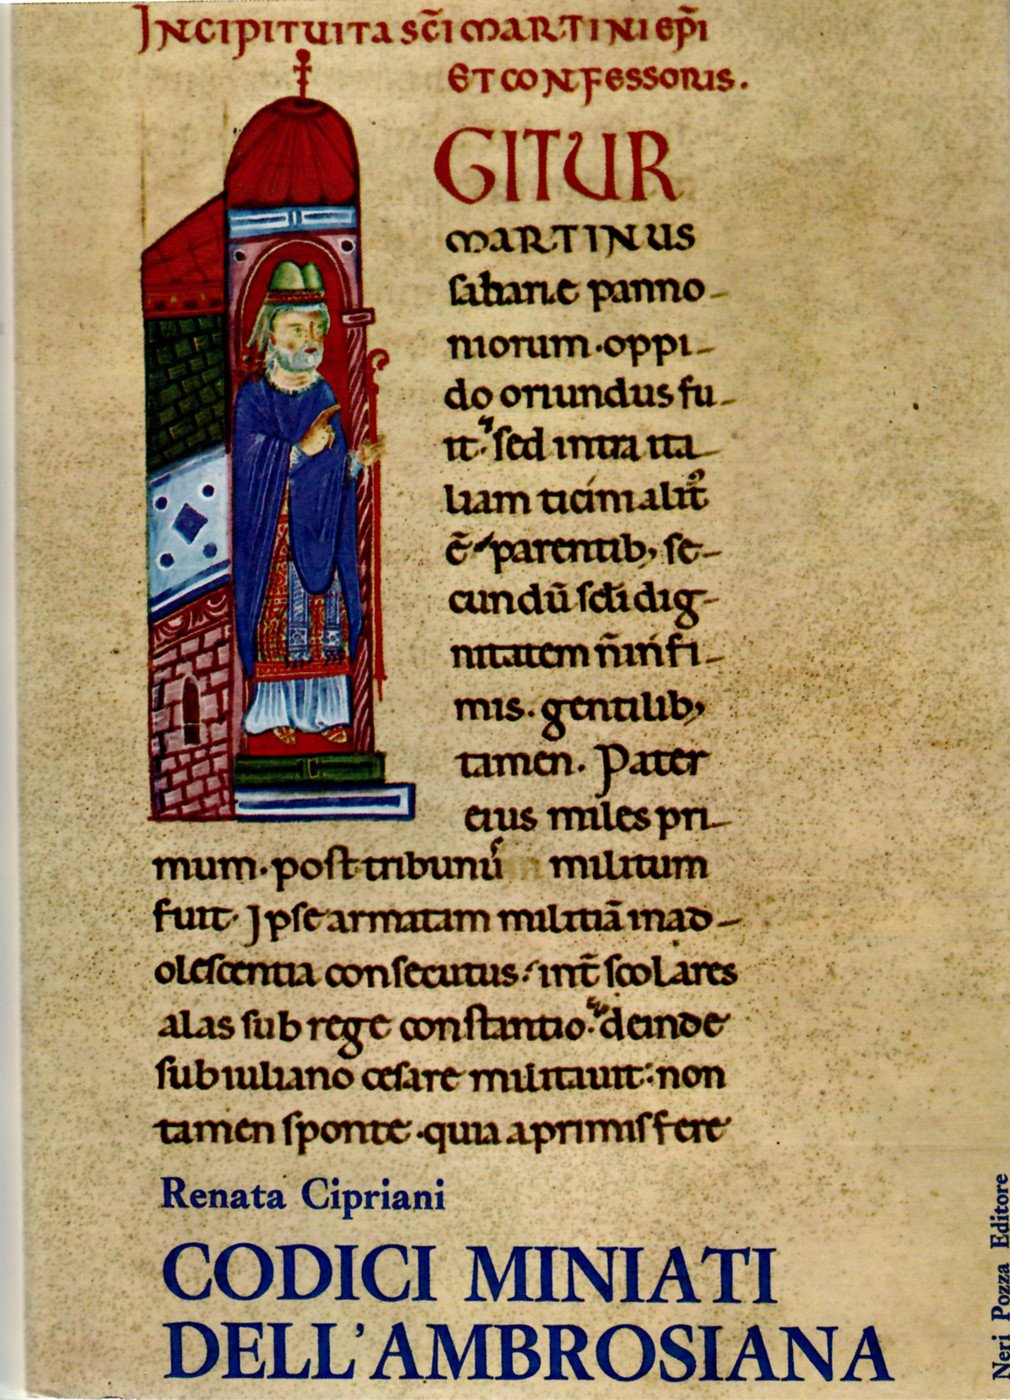 INCIPIT UITA SC̄I MARTINI EP̄I
ET CONFESSORIS.
GITUR
MARTINUS
sabarie panno-
niorum·oppi-
do oriundus fu-
it· sed intra ita-
liam ticini alit᷒
ē parentib; se-
cundū scd̄i dig-
nitatem n̄ infi-
mis. gentilib;
tamen. Pater
eius miles pri-
mum·post tribunū militum
fuit· Ipse armatam militiā in ad-
olescentia consecutus· int̄ scolares
alas sub rege constantio· deinde
sub iuliano cesare militauit· non
tamen sponte·quia a primis fere
Renata Cipriani
CODICI MINIATI
DELL'AMBROSIANA
Neri Pozza Editore